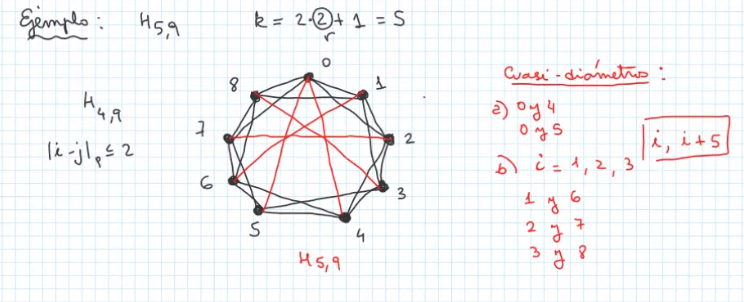 Ejemplo: H5,9 k = 2·2 + 1 = 5
r
H4,9
|i-j|p ≤ 2
0
1
2
3
4
5
6
7
8
H5,9
Cuasi-diámetros:
a) 0 y 4
0 y 5
i, i+5
b) i = 1, 2, 3
1 y 6
2 y 7
3 y 8